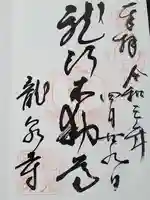 奉拝 令和三年
四月廿九日
不動尊
龍泉寺